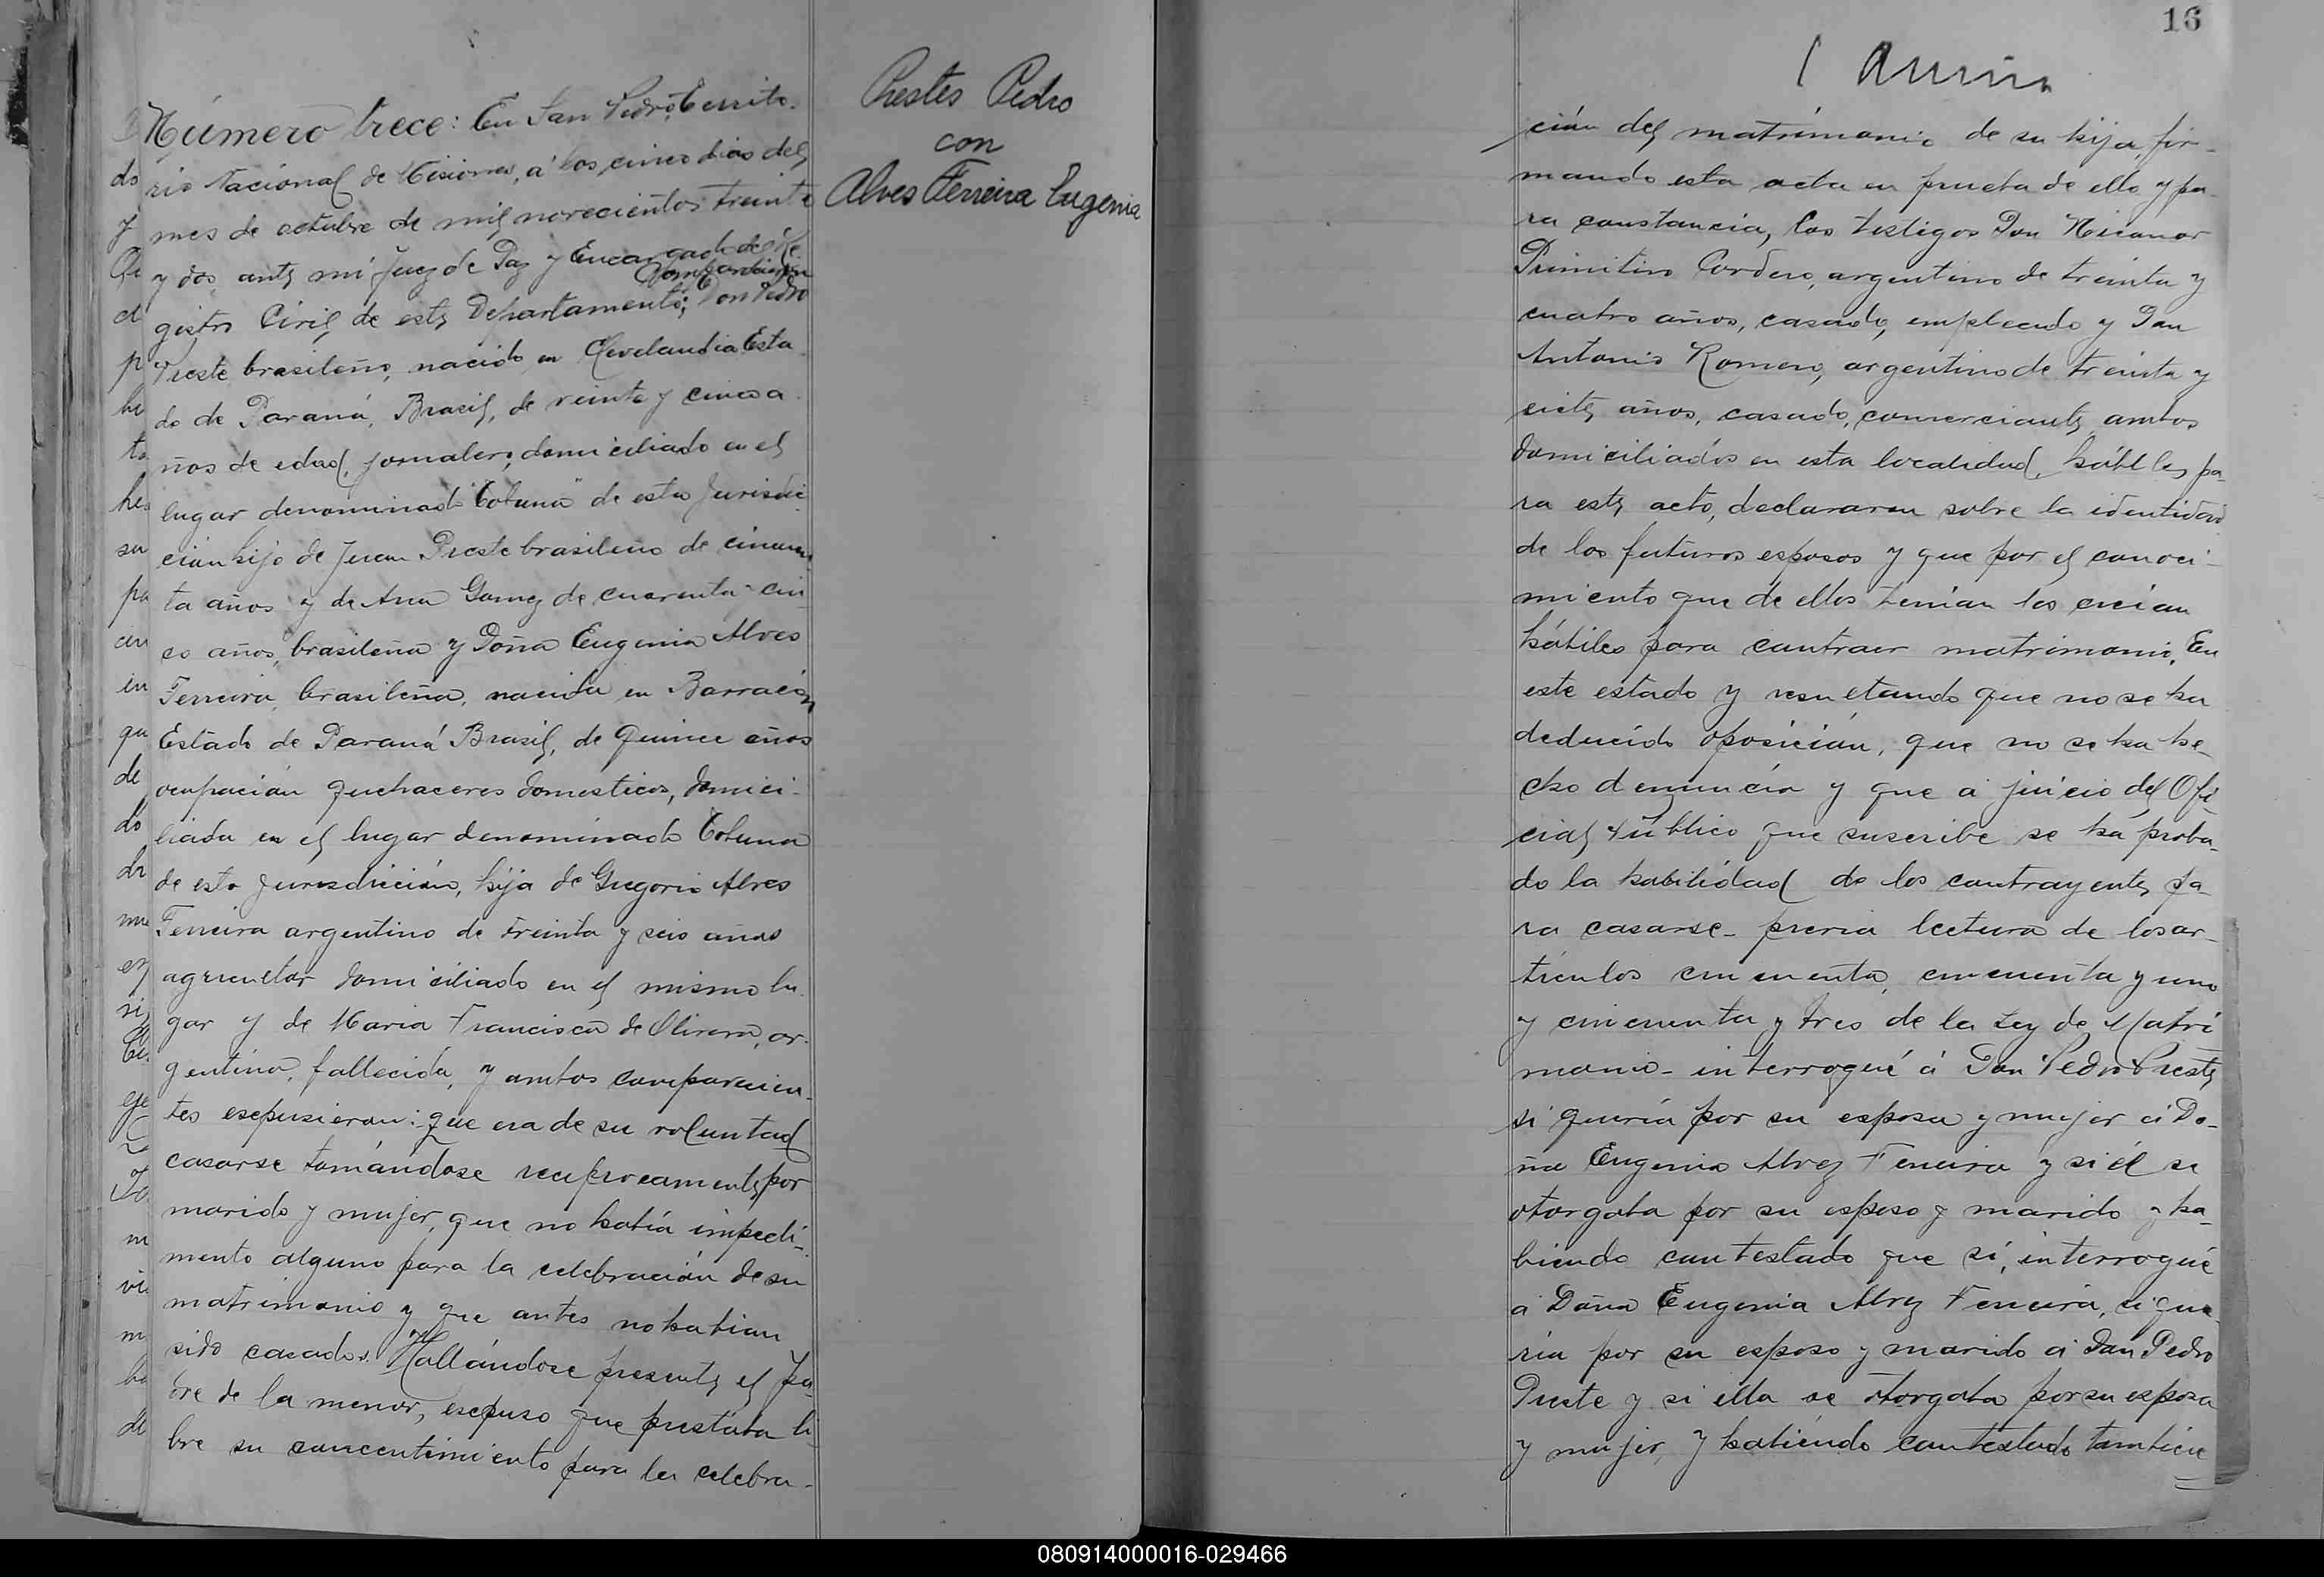 Número trece: En San Pedro, Territo-
rio Nacional de Misiones, á los cinco dias del
mes de octubre de mil novecientos treinta
y dos, ante mi Juez de Paz y Encargado del Re
gistro Civil de este Departamento; comparecieron Don Pedro
Preste brasileño, nacido en Clevelandia Esta
do de Paraná, Brasil, de veinte y cinco a-
ños de edad, jornalero, domiciliado en el
lugar denominado "Toluna" de esta Jurisdic
ción hijo de Juan Preste brasileño de cincuen
ta años y de Ana Gomez de cuarenta cin-
co años, brasileña y Doña Eugenia Alves
Ferreira, brasileña, nacida en Barracón
Estado de Paraná Brasil, de quince años
ocupación quehaceres domesticos, domici-
liada en el lugar denominado Toluna
de esta jurisdicción, hija de Gregorio Alves
Ferreira argentino de treinta y seis años
agricultor domiciliado en el mismo lu
gar y de Maria Francisca de Olivera, ar-
gentina, fallecida, y ambos comparecien-
tes escpusieron: que era de su voluntad
casarse tomándose reciprocamente por
marido y mujer, que no habia impedi-
mento alguno para la celebración de su
matrimonio y que antes no habian
sido casados. Hallándose presente el pa-
dre de la menor, escpuso que prestaba li-
bre su concentimiento para la celebra-
Prestes Pedro
con
Alves Ferreira Eugenia
16
ción del matrimonio de su hija, fir-
mando esta acta en prueba de ello y pa-
ra constancia, los testigos Don Nicanor
Primitivo Cordero, argentino de treinta y
cuatro años, casado, empleado y Don
Antonio Romero, argentino de treinta y
siete años, casado, comerciante ambos
domiciliados en esta localidad, hábiles pa-
ra este acto, declararon sobre la identidad
de los futuros esposos y que por el conoci-
miento que de ellos tenian los creian
hábiles para contraer matrimonio, En
este estado y resultando que no se ha
deducido oposición, que no se ha he-
cho denuncia y que a juicio del Ofi
cial Público que suscribe se ha proba-
do la habilidad de los contrayentes pa-
ra casarse- previa lectura de los ar-
ticulos cincuenta, cincuenta y uno
y cincuenta y tres de la Ley de Matri
monio- interrogué á Don Pedro Preste
si queria por su esposa y mujer á Do-
ña Eugenia Alvez Ferreira y si él se
otorgaba por su esposo y marido y ha-
biendo contestado que sí, interrogué
a Doña Eugenia Alvez Ferreira, si que-
ria por su esposo y marido á Don Pedro
Preste y si ella se otorgaba por su esposa
y mujer, y habiendo contestado tambien
080914000016-029466